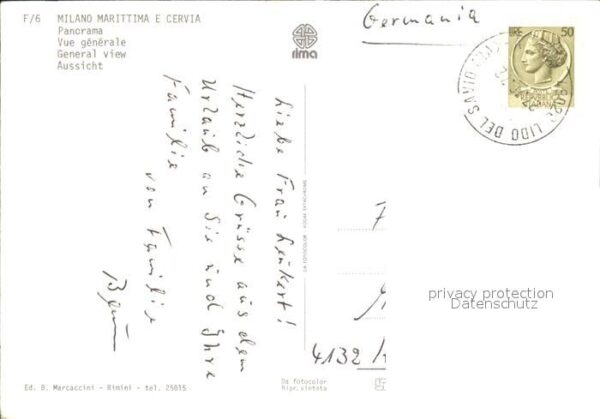 F/6 MILANO MARITTIMA E CERVIA
Panorama
Vue générale
General view
Aussicht
rima
Germania
LIRE 50
LIDO DEL SAVIO
Liebe Frau Lenkert!
Herzliche Grüsse aus dem
Urlaub an Sie und Ihre
Familie
von Familie
DA FOTOCOLOR
privacy protection
Datenschutz
4132
Ed. B. Marcaccini - Rimini - tel. 25615
Da fotocolor
Ripr. vietata